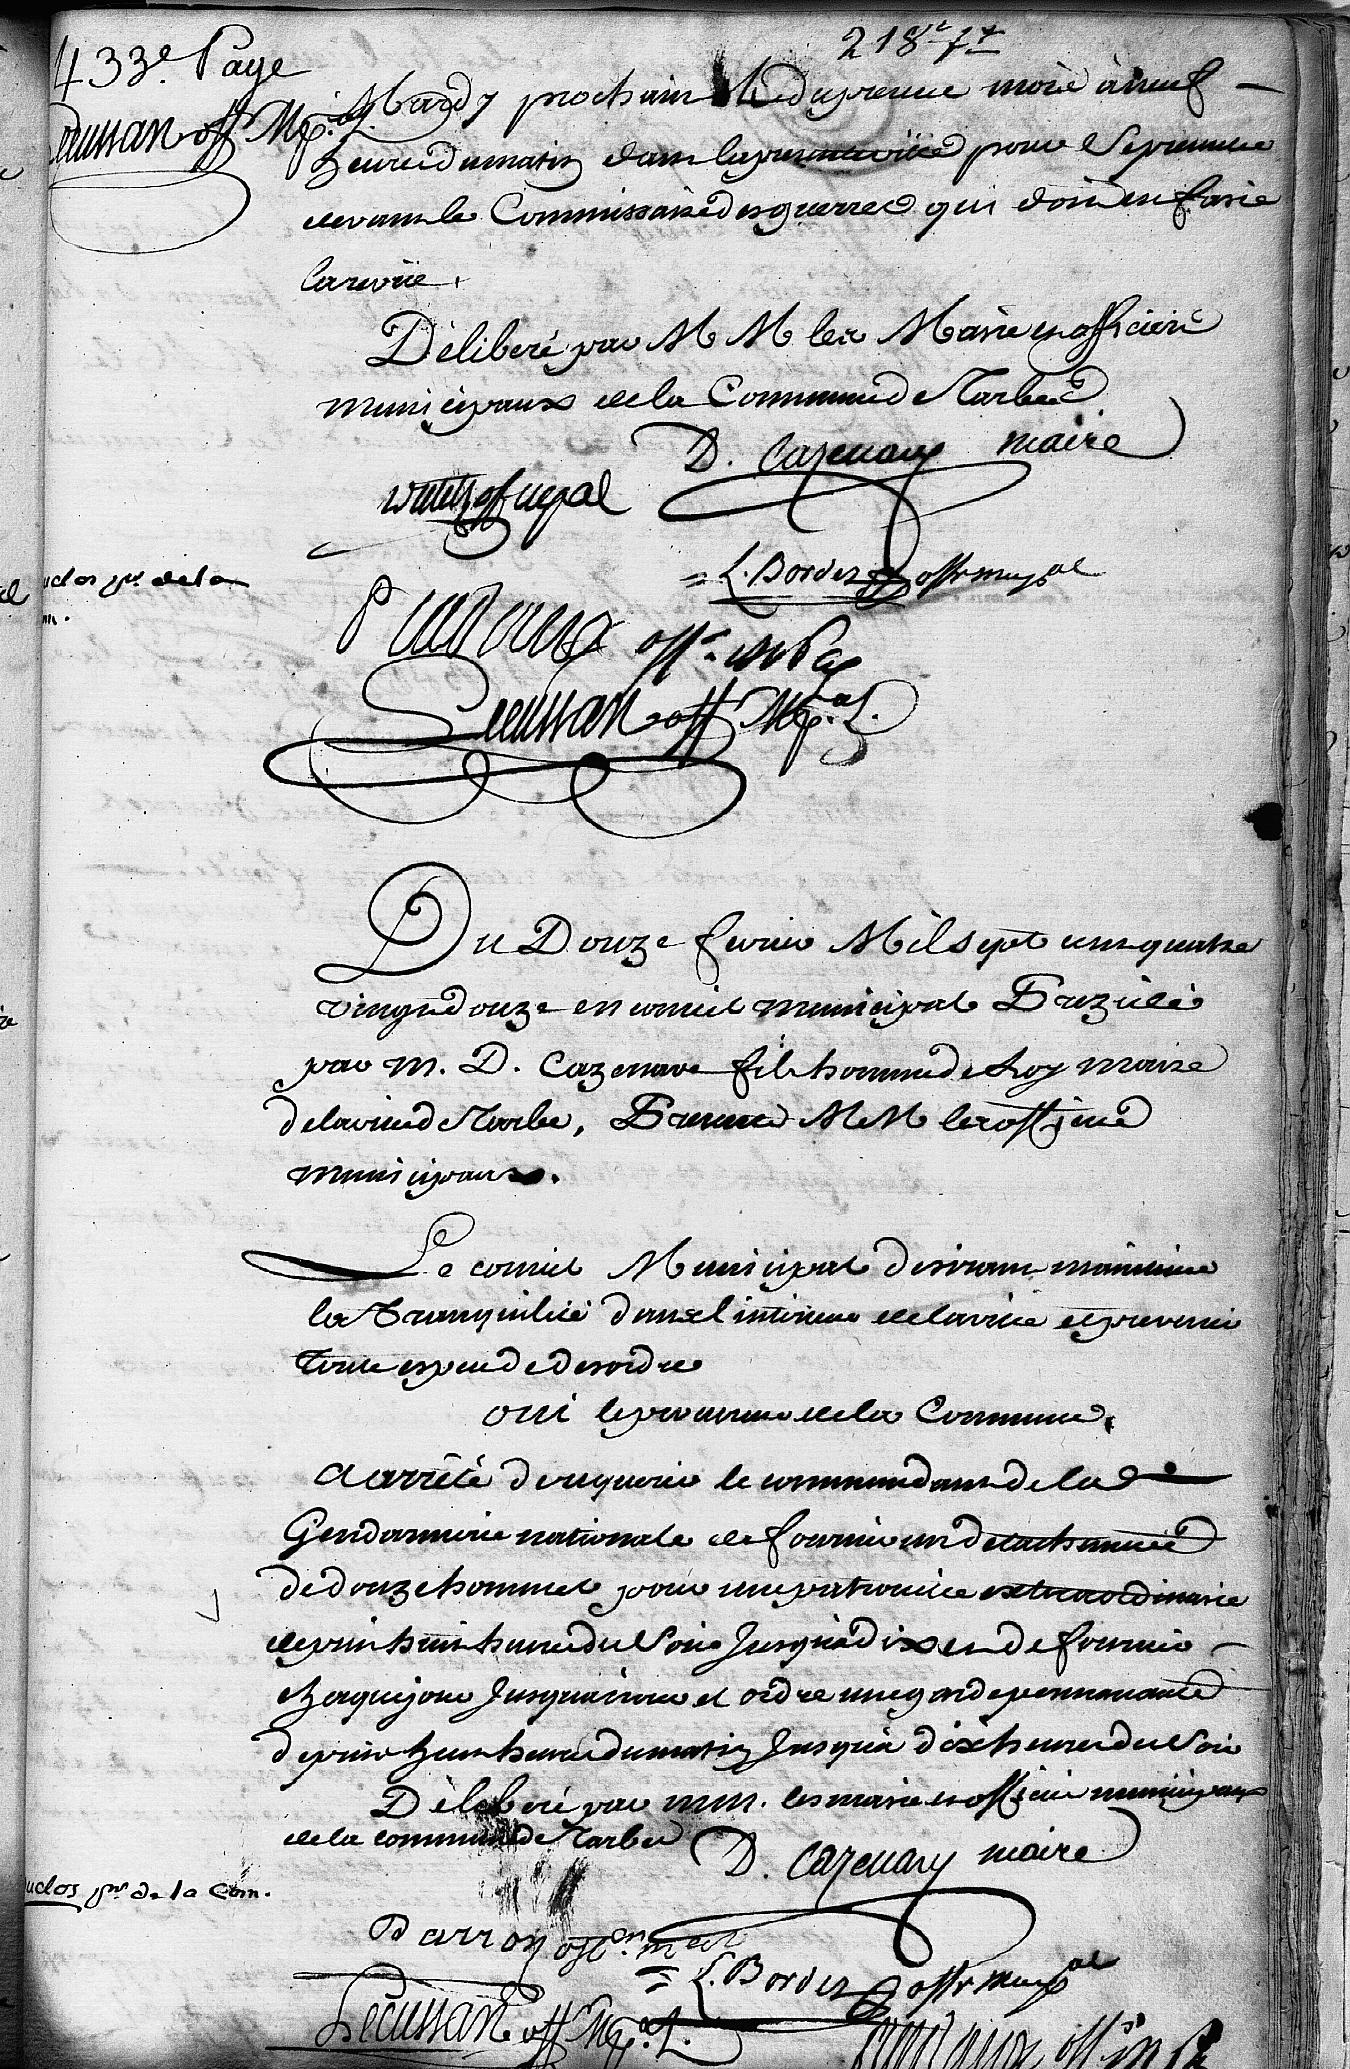 433e. Page
218e 7t
Lecussan off Mpal.
Mardy prochain 14 du present mois à neuf
heures du matin dans la presente ville pour se presenter
devant le Commissaire des guerres qui doit en faire
la revüe.
Déliberé par M M les Maire et officiers
municipaux de la Commune de Tarbes
D. Cazenave maire
off mpal
L. Bordes offr mupal
uclos pr de la
m.
off. mpal
Lecussan off Mpal.
Du Douze fevrier Mil sept cens quatre
vingt douze en conseil municipal Prezidé
par m. D. Cazenave fils homme de loy maire
de la ville de Tarbes, Presents MM les officiers
municipaux.
Le conseil Municipal desirant maintenir
la Tranquilité dans l'interieur de la ville et prevenir
toute espece de desordre
oui le procureur de la Commune.
a arrêté de requerir le commandant de la
Gendarmerie nationale de fournir un detachement
de douze hommes pour une patrouille extraordinaire
depuis huit heures du soir Jusqu'a dix et de fournir
chaque jour Jusqu'a nouvel ordre une garde permanante
depuis huit heures du matin Jusqu'a dix heures du soir
Déliberé par mm. les maire et officiers municipaux
de la commune de Tarbes
D. Cazenave maire
uclos pr de la Com.
Barron offr mpal
L. Bordes offr mupal
Lecussan off Mpal.
off m p